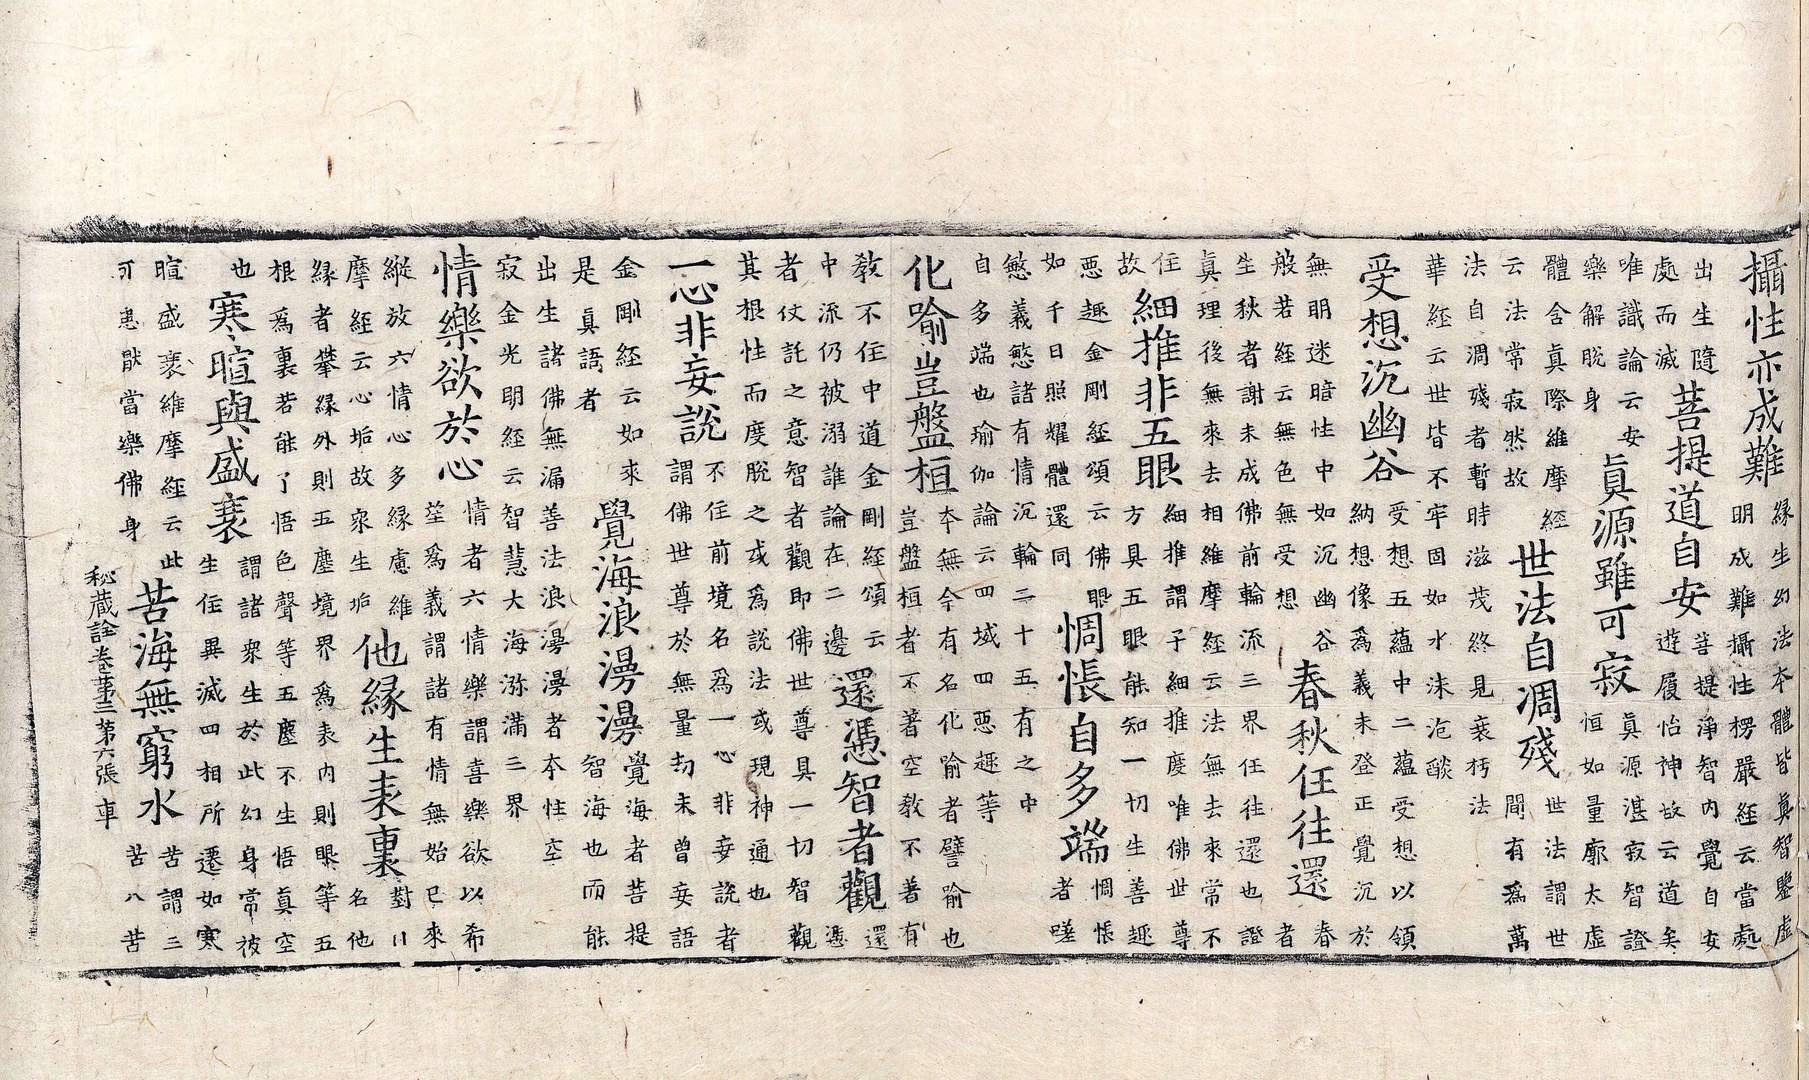 攝性亦成難
緣生幻法本體皆眞智鑒虛
明成難攝性楞嚴經云當處
出生隨
處而滅
菩提道自安
菩提淨智內覺自安
遊履怡神故云道矣
唯識論云安
樂解脫身
眞源雖可寂
眞源湛寂智證
恒如量廓太虛
體含眞際維摩經
云法常寂然故
世法自凋殘
世法謂世
間有爲萬
法自凋殘者暫時滋茂終見衰朽法
華經云世皆不牢固如水沫泡燄
受想沉幽谷
受想五蘊中二蘊受想以領
納想像爲義未登正覺沉於
無明迷暗性中如沉幽谷
般若經云無色無受想
春秋任往還
春
者
生秋者謝未成佛前輪流三界任往還也證
眞理後無來去相維摩經云法無去來常不
住
故
細推非五眼
細推謂子細推度唯佛世尊
方具五眼能知一切生善趣
惡趣金剛經頌云佛眼
如千日照耀體還同
惆悵自多端
惆悵
者嗟
慜義慜諸有情沉輪二十五有之中
自多端也瑜伽論云四域四惡趣等
化喻豈盤桓
本無今有名化喻者譬喻也
豈盤桓者不著空教不著有
教不住中道金剛經頌云
中流仍被溺誰論在二邊
還憑智者觀
還
憑
者仗託之意智者觀即佛世尊具一切智觀
其根性而度脫之或爲說法或現神通也
一心非妄說
不住前境名爲一心非妄說者
謂佛世尊於無量劫未曾妄語
金剛經云如來
是眞語者
覺海浪漫漫
覺海者菩提
智海也而能
出生諸佛無漏善法浪漫漫者本性空
寂金光明經云智慧大海瀰滿三界
情樂欲於心
情者六情樂謂喜樂欲以希
望爲義謂諸有情無始已來
縱放六情心多緣慮維
摩經云心垢故眾生垢
他緣生表裏
對
名他
緣者攀緣外則五塵境界爲表內則眼等五
根爲裏若能了悟色聲等五塵不生悟眞空
也
寒暄與盛衰
謂諸眾生於此幻身常被
生住異滅四相所遷如寒
暄盛衰維摩經云此
可患猒當樂佛身
苦海無窮水
苦謂三
苦八苦
秘蔵詮卷第三第六張 車